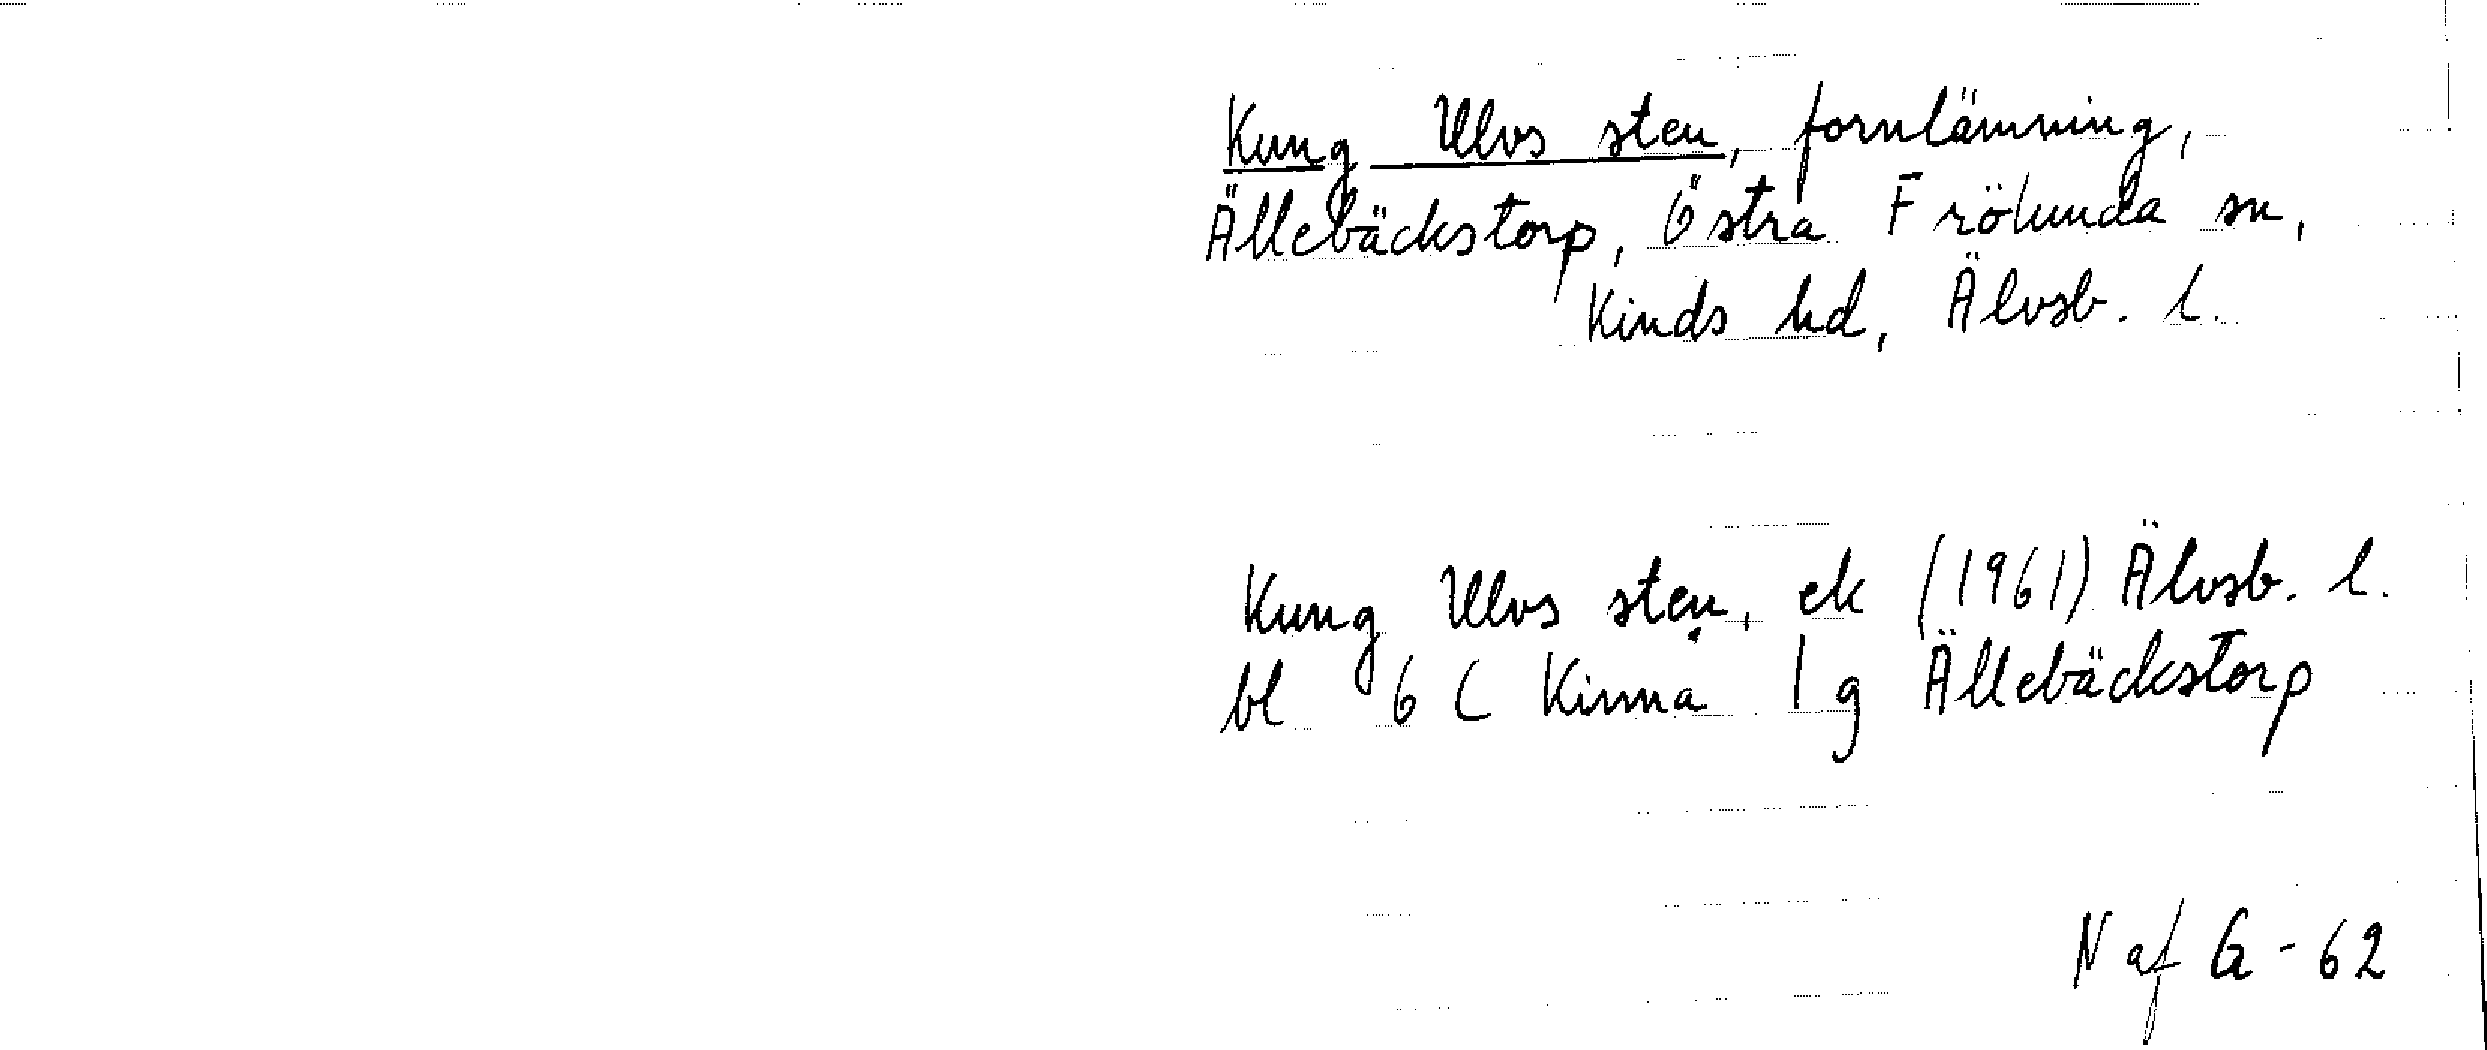 Kung Ulvs sten, fornlämning,
Ällebäckstorp, Östra Frölunda sn,
Kinds hd, Älvsb. l.
Kung Ulvs sten, ek (1961) Älvsb. l.
bl 6 C Kinna 1 g Ällebäckstorp
N af G - 62